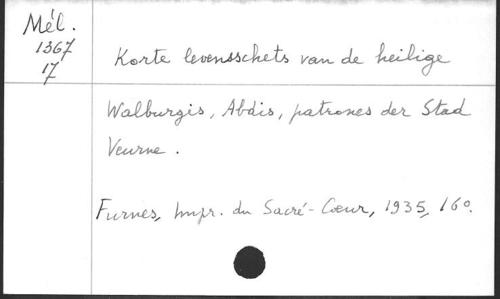 Mél.
1367
17
Korte levensschets van de heilige
Walburgis, Abdis, patrones der Stad
Veurne.
Furnes, Impr. du Sacré-Cœur, 1935, 16°.